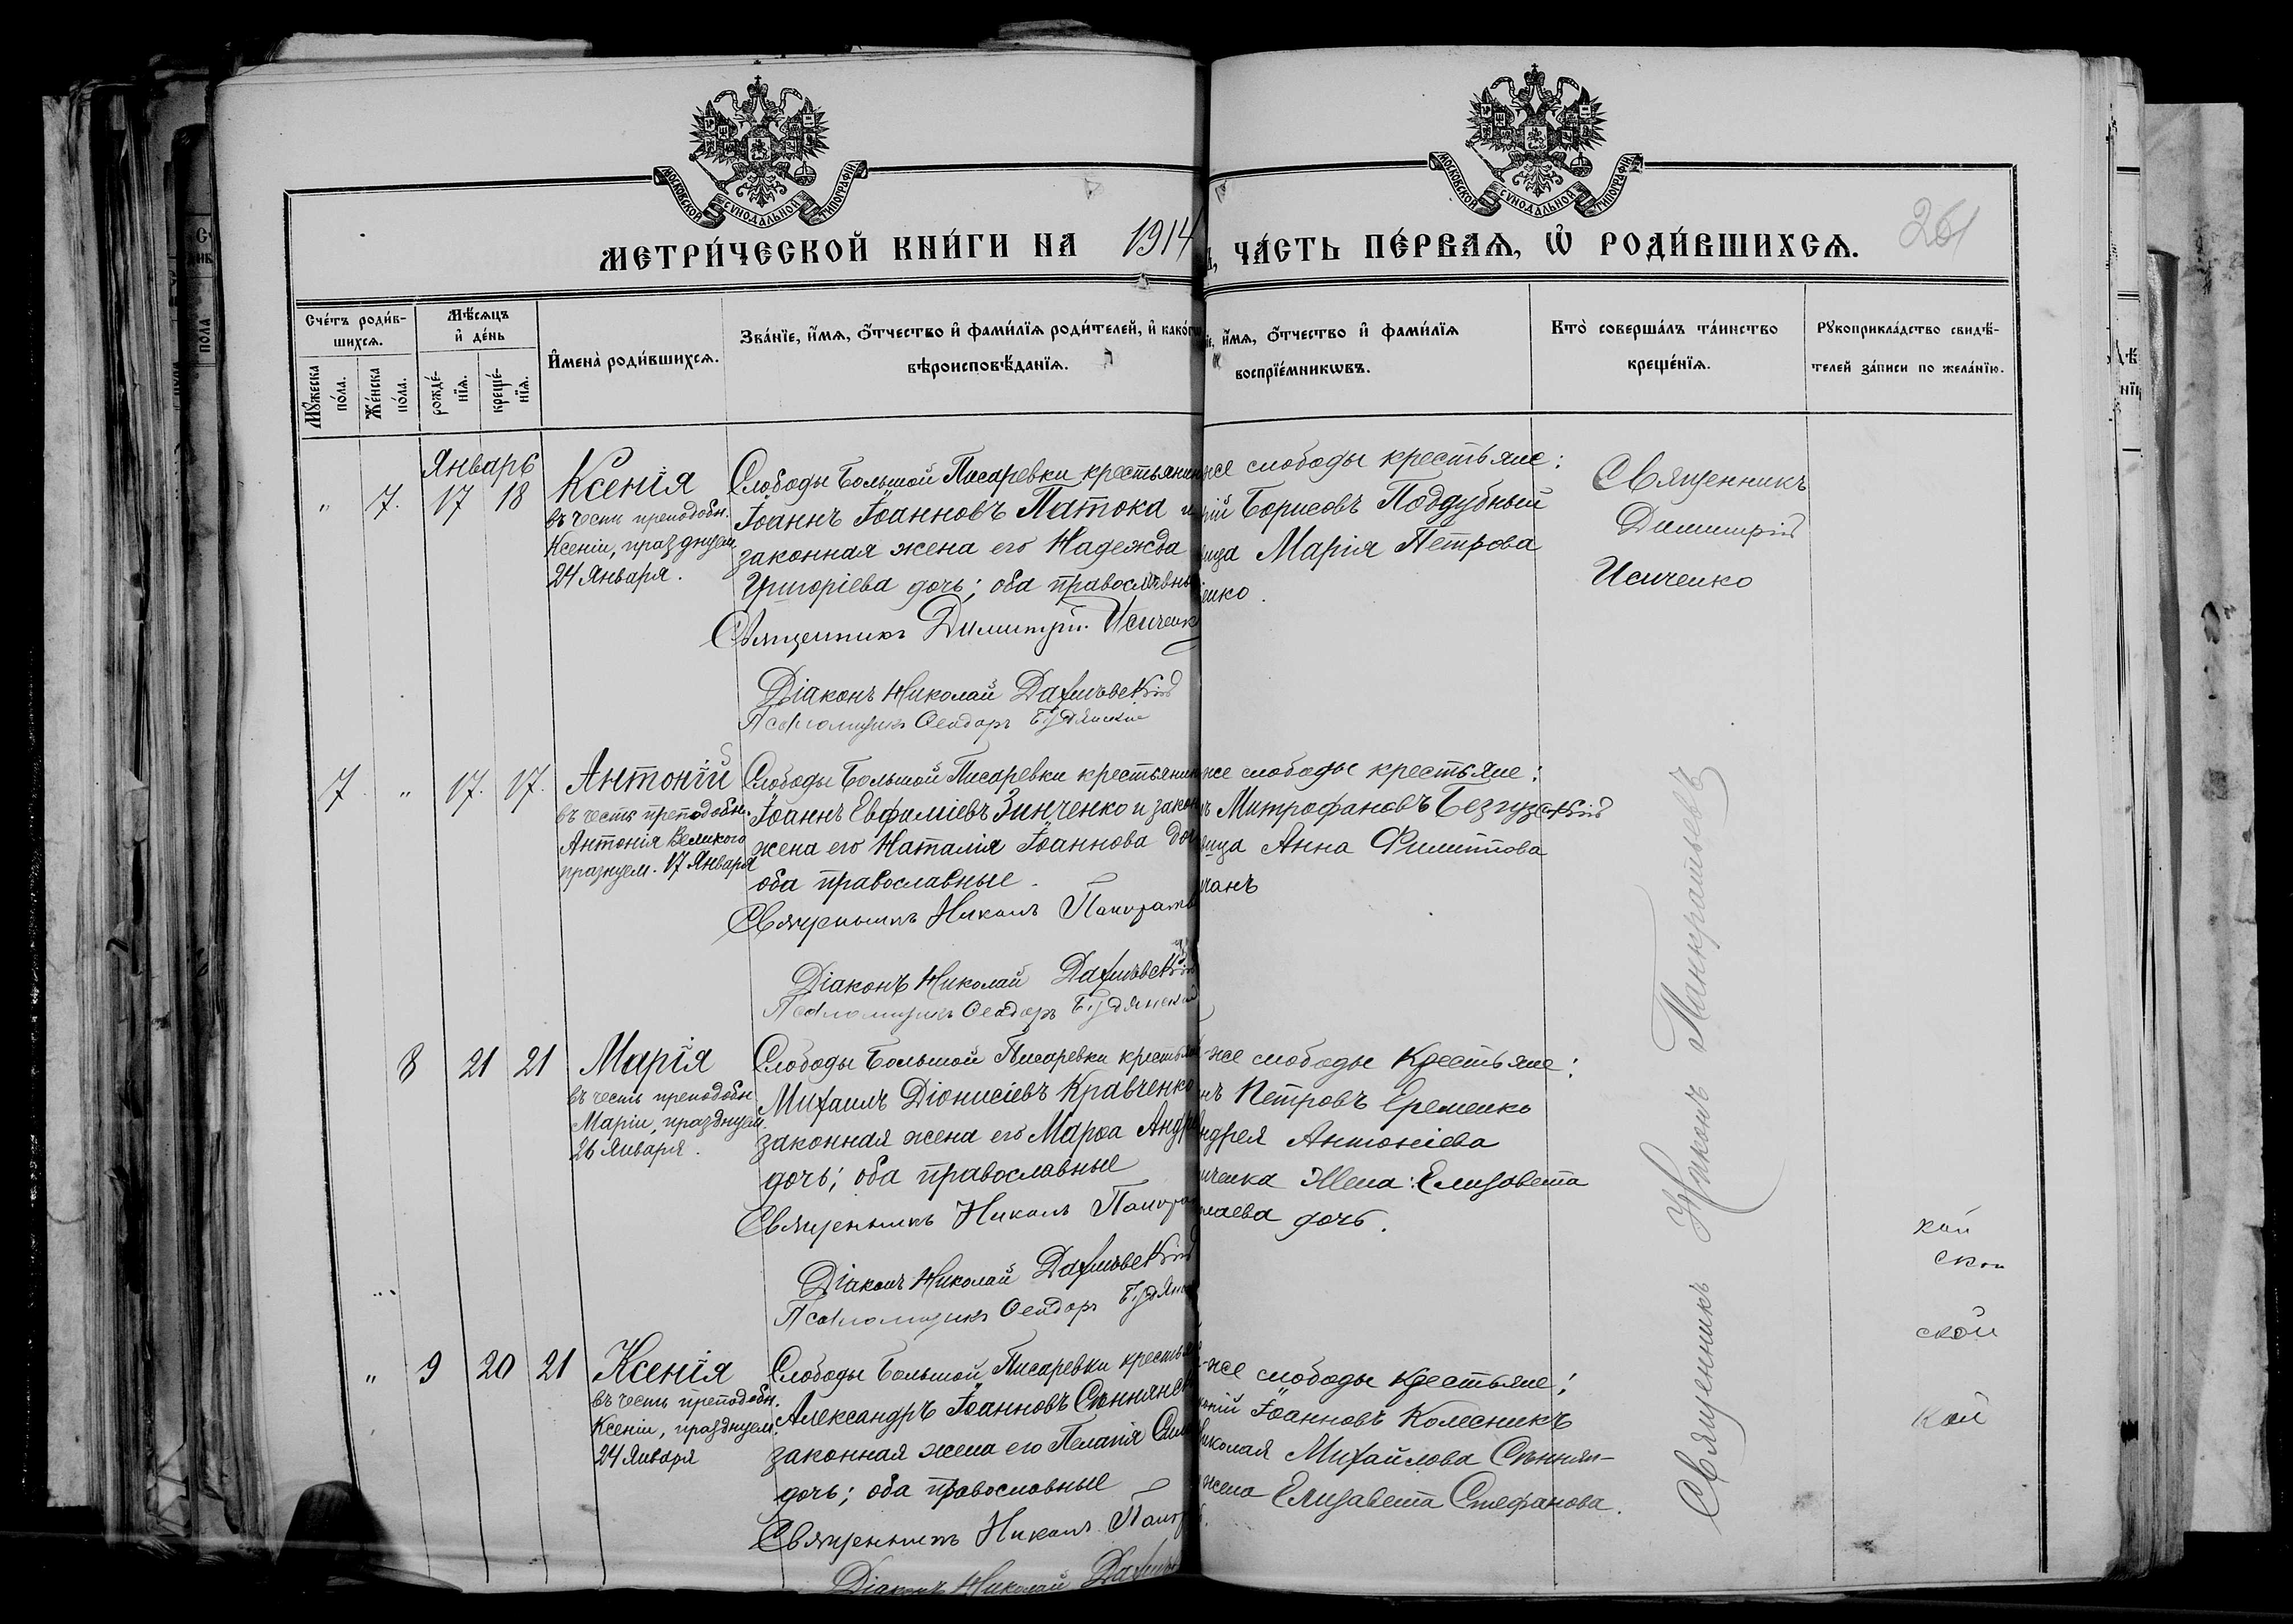 МОСКОВСКОЙ СѴНОДАЛЬНОЙ ТИПОГРАФІИ.
МОСКОВСКОЙ СѴНОДАЛЬНОЙ ТИПОГРАФІИ.
МЕТРИ́ЧЕСКОЙ КНИ́ГИ НА 1914
ЧА́СТЬ ПЕ́РВАѦ, Ѿ РОДИ́ВШИХСѦ.
261
Сче́тъ роди́в-
шихсѧ.
Мꙋ́жеска по́ла.
Же́нска по́ла.
Мѣ́сѧцъ
и҆ де́нь
рожде́-
нїѧ.
креще́-
нїѧ.
И҆мена̀ роди́вшихсѧ.
Зва́нїе, и҆́мѧ, ѻ҆́тчество и҆ фами́лїѧ роди́телей, и҆ како́гѡ
вѣроисповѣ́данїѧ.
и҆́мѧ, ѻ҆́тчество и҆ фами́лїѧ
воспрїе́мникѡвъ.
Кто̀ соверша́лъ та́инство
креще́нїѧ.
Рꙋкоприкла́дство свидѣ́-
телей за́писи по жела́нїю.
Январь
" 7. 17 18
Ксенія
въ честь преподобн.
Ксеніи, празднуем.
24 Января.
Слободы Большой Писаревки крестьянин
Іоаннъ Іоанновъ Патока и
законная жена его Надежда
Григоріева дочь; оба православны
Священникъ Димитрій Исиченк
Діаконъ Николай
Псаломщикъ Ѳеодоръ
же слободы крестьяне:
рій Борисовъ Поддубный
вица Марія Петрова
енко.
Священникъ
Димитрій
Исиченко
7. " 17. 17.
Антоній
въ честь преподобн.
Антонія Великого
празнуем. 17 Января
Слободы Большой Писаревки крестьянин
Іоаннъ Евфиміевъ Зинченко и закон
жена его Наталія Іоаннова доч
оба православные.
Священникъ Никонъ Панкрать
Діаконъ Николай
Псаломщикъ Ѳеодоръ
же слободы крестьяне:
ъ Митрофановъ Безгузскій
вица Анна Филиппова
чанъ
8 21 21
Марія
въ честь преподобн
Маріи, празднуем.
26 Января.
Слободы Большой Писаревки крестьян
Михаилъ Діонисіевъ Кравченко
законная жена его Марѳа Андре
дочь; оба православные
Священникъ Никонъ Панкра
Діаконъ Николай
Псаломщикъ Ѳеодоръ
же слободы Крестьяне:
нъ Петровъ Еременко
ндрея Антоніева
ченка Жена: Елизавета
лаева дочь.
" 9 20 21
Ксенія
въ честь преподобн.
Ксеніи, празднуем.
24 Января
Слободы Большой Писаревки крестьян
Александръ Іоанновъ Сѣннянс
законная жена его Пелагія Сим
дочь; оба православные
Священникъ Никонъ Панкр
Діаконъ Николай
же слободы Крестьяне:
Іоанновъ Колесникъ
иколая Михайлова Сѣннян-
жена Елизавета Стефанова.
Священникъ Никонъ Панкратьевъ
кой
ской
ской
кой